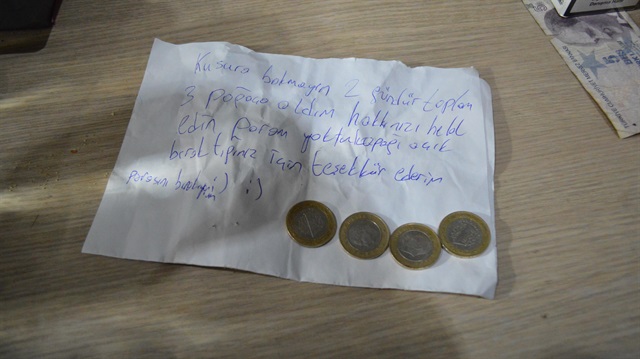 Kusura bakmayın 2 gündür toplam
3 poğaça aldım hakkınızı helal
edin param yoktu kapağı açık
bıraktığınız için teşekkür ederim
parasını bırakıyom :) :)
5